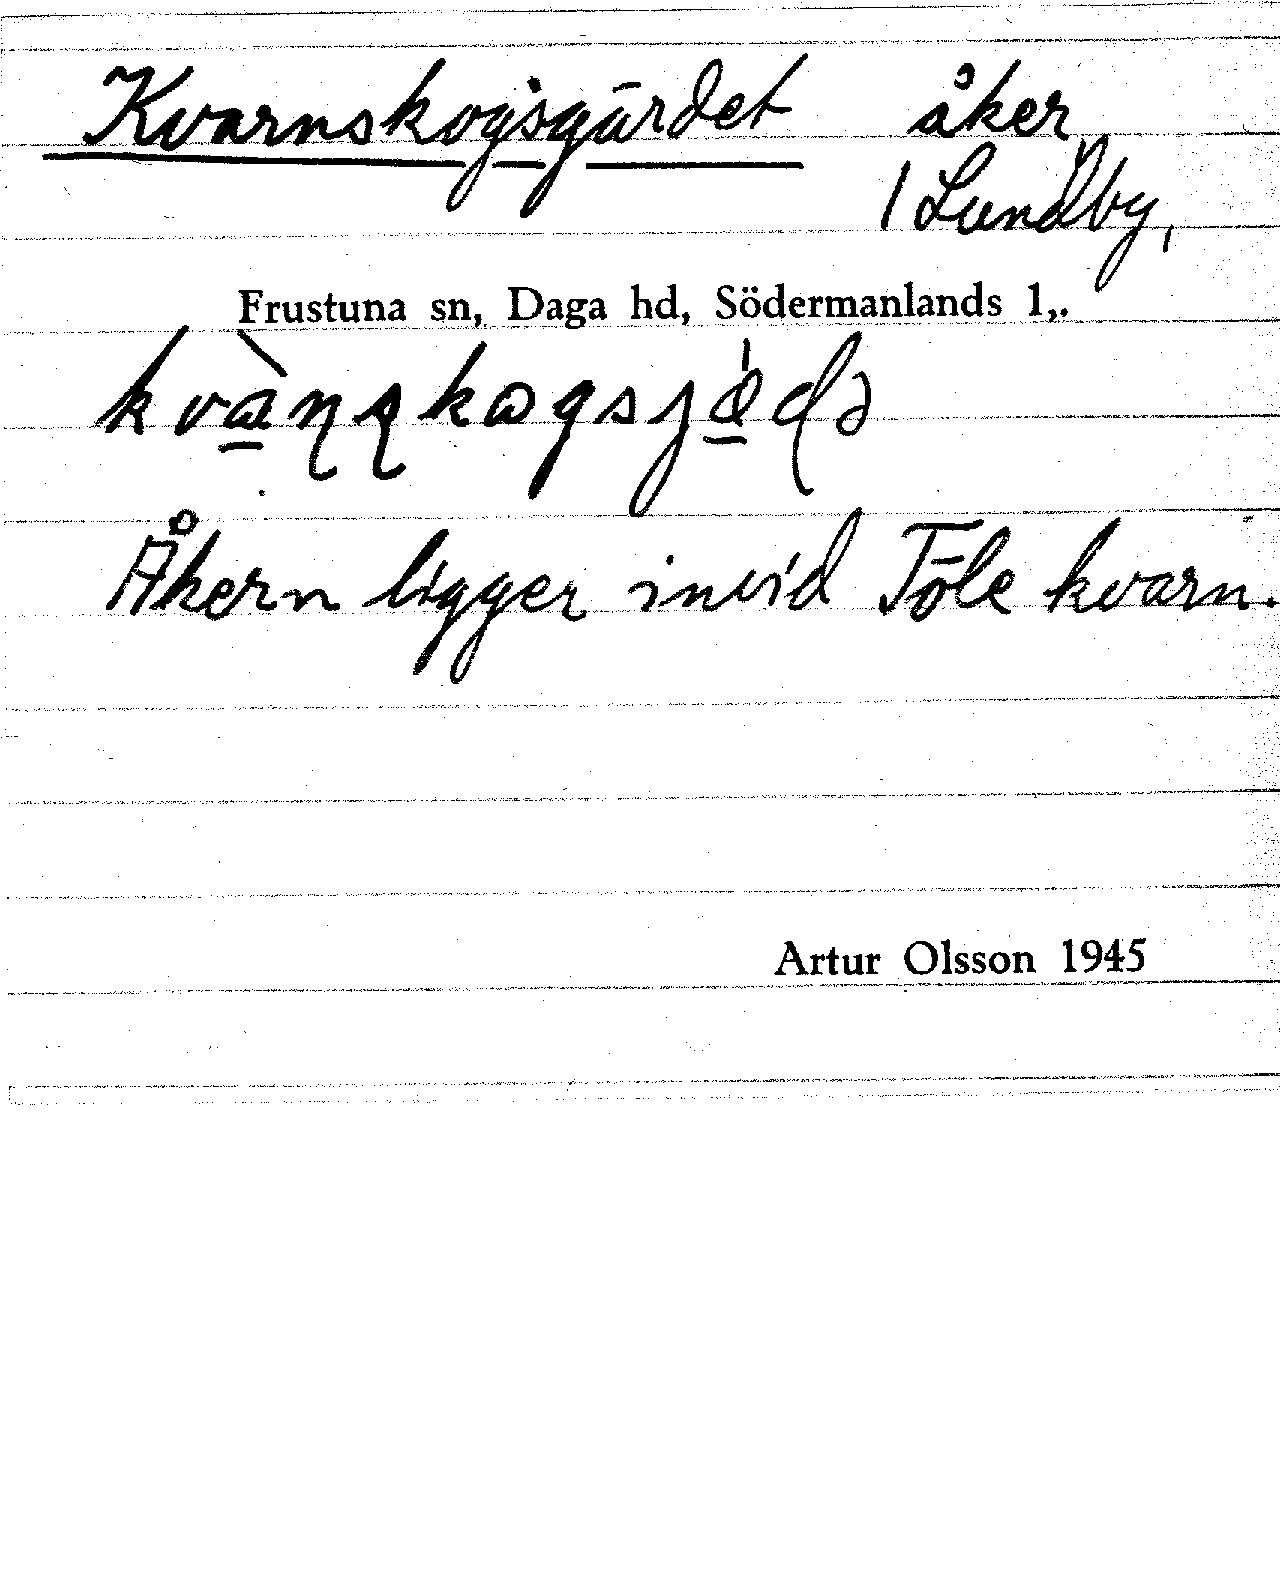 Kvarnskogsgärdet åker,
1 Lundby,
Frustuna sn, Daga hd, Södermanlands l,.
Åkern ligger invid Töle kvarn.
Artur Olsson 1945